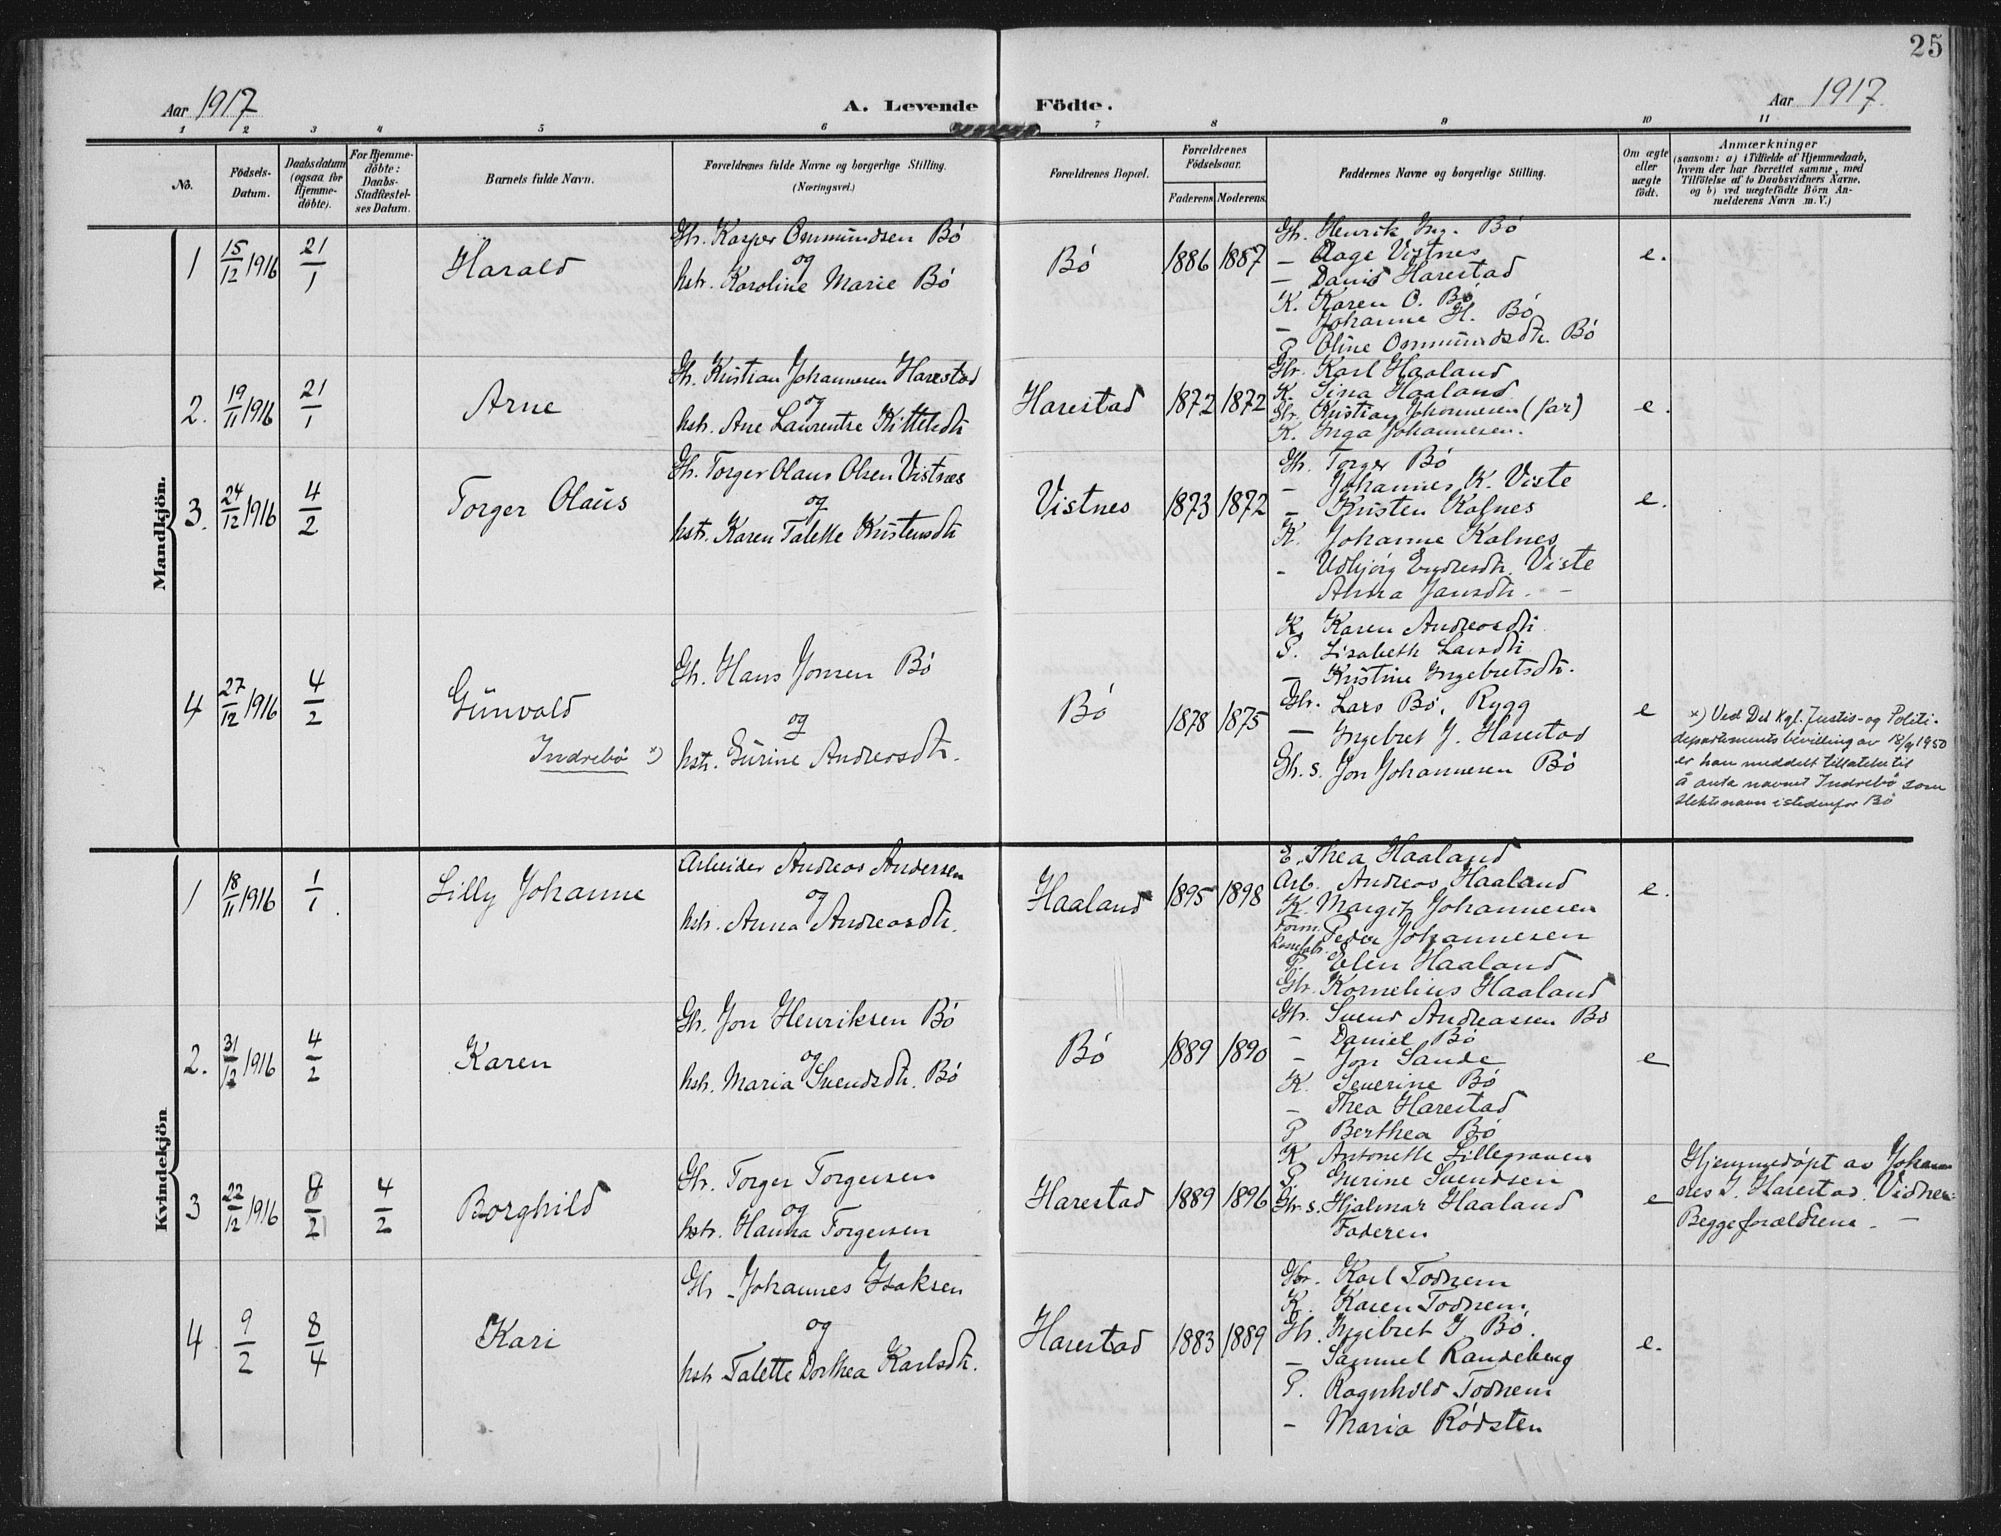 25
Aar 1917
A. Levende Födte.
Aar 1917.
1 2 3 4 5 6 7 8 9 10 11
No.
Födsels-
Datum.
Daabsdatum
(ogsaa for
Hjemme-
döbte).
For Hjemme-
döbte:
Daabs-
Stadfæstel-
ses Datum.
Barnets fulde Navn.
Forældrenes fulde Navne og borgerlige Stilling.
(Næringsvei.)
Forældrenes Bopæl.
Forældrenes
Födselsaar.
Faderens. Moderens.
Faddernes Navne og borgerlige Stilling.
Om ægte
eller
uægte
födt.
Anmærkninger
(saasom: a) i Tilfælde af Hjemmedaab,
hvem der har forrettet samme, med
Tilföielse af to Daabsvidners Navne,
og b) ved uægtefödte Börn An-
melderens Navn m. V.)
Mandkjön.
1 15/12 1916 21/1
Harald
Gh. Kasper Ommundsen Bö
og
hstr. Karoline Marie Bö
Bö 1886 1887
Gh. Henrik Ing. Bö
– Aage Vistnes
– Daniel Harestad
K. Karen O. Bö
– Johanne H. Bö
P Oline Ommundsdtr. Bö
e.
2. 19/11 1916 21/1
Arne
Gh. Kristian Johannesen Harestad
og
hstr. Ane Laurentse Kittelsdtr
Harestad 1872 1872
Gbr. Karl Haaland
K. Sina Haaland
Gbr. Kristian Johannesen (far)
K. Inga Johannesen.
e.
3. 24/12 1916 4/2
Torger Olaus
Gh. Torger Olaus Olsen Vistnes
og
hstr. Karen Talette Kristensdtr
Vistnes 1873 1872
Gh. Torger Bö
– Johannes K. Viste
– Kristen Kalnes
K. Johanne Kalnes
– Udbjörg Endresdtr. Viste
Anna Jansdtr. –
e.
4 27/12 1916 4/2
Gunvald
Indrebö x)
Gh. Hans Jonsen Bö
og
hstr. Gurine Andreasdtr.
Bö 1878 1875
K. Karen Andreasdtr
P. Lisabeth Larsdtr
– Kristine Ingebretsdtr.
Gbr. Lars Bö, Rygg
– Ingebret J. Harestad
Gh. s. Jon Johannesen Bö
e
x) Ved Det Kgl. Justis- og Politi-
departements bevilling av 18/9 1950
er han meddelt tillatelse til
å anta navnet Indrebö som
slektsnavn istedenfor Bö
Kvindekjön
1 18/11 1916 1/1
Lilly Johanne
Arbeider Andreas Andersen
og
hstr. Anna Andreasdtr.
Haaland 1895 1898
E. Thea Haaland
Arb. Andreas Haaland
K. Margit Johannesen
Form. Peder Johannesen
P Elen Haaland
Gbr. Kornelius Haaland
e.
2. 31/12 1916 4/2
Karen
Gh. Jon Henriksen Bö
og
hstr. Maria Svendsdtr. Bö
Bö 1889 1890
Gh. Svend Andreassen Bö
– Daniel Bö
– Jon Sande
K. Severine Bö
– Thea Harestad
P Berthea Bö
e
3 22/12 1916 4/2
Borghild
Gbr. Torger Torgersen
og
hstr. Hanna Torgersen
Harestad 1889 1896
K Antonette Lillegraven
P. Gurine Svendsen
Gbr. s. Hjalmar Haaland
Faderen
e
Hjemmedöpt av Johan-
nes I. Harestad. Vidner:
Begge forældrene. –
4 9/2 8/4
Kari
Gh – Johannes Isaksen
og
hstr Talette Dorthea Karlsdtr.
Harestad 1883 1889
Gbr. Karl Todnem
K. Karen Todnem
Gh. Ingebret I Bö.
– Samuel Randeberg
P. Ragnhild Todnem
– Maria Rödsten
e.